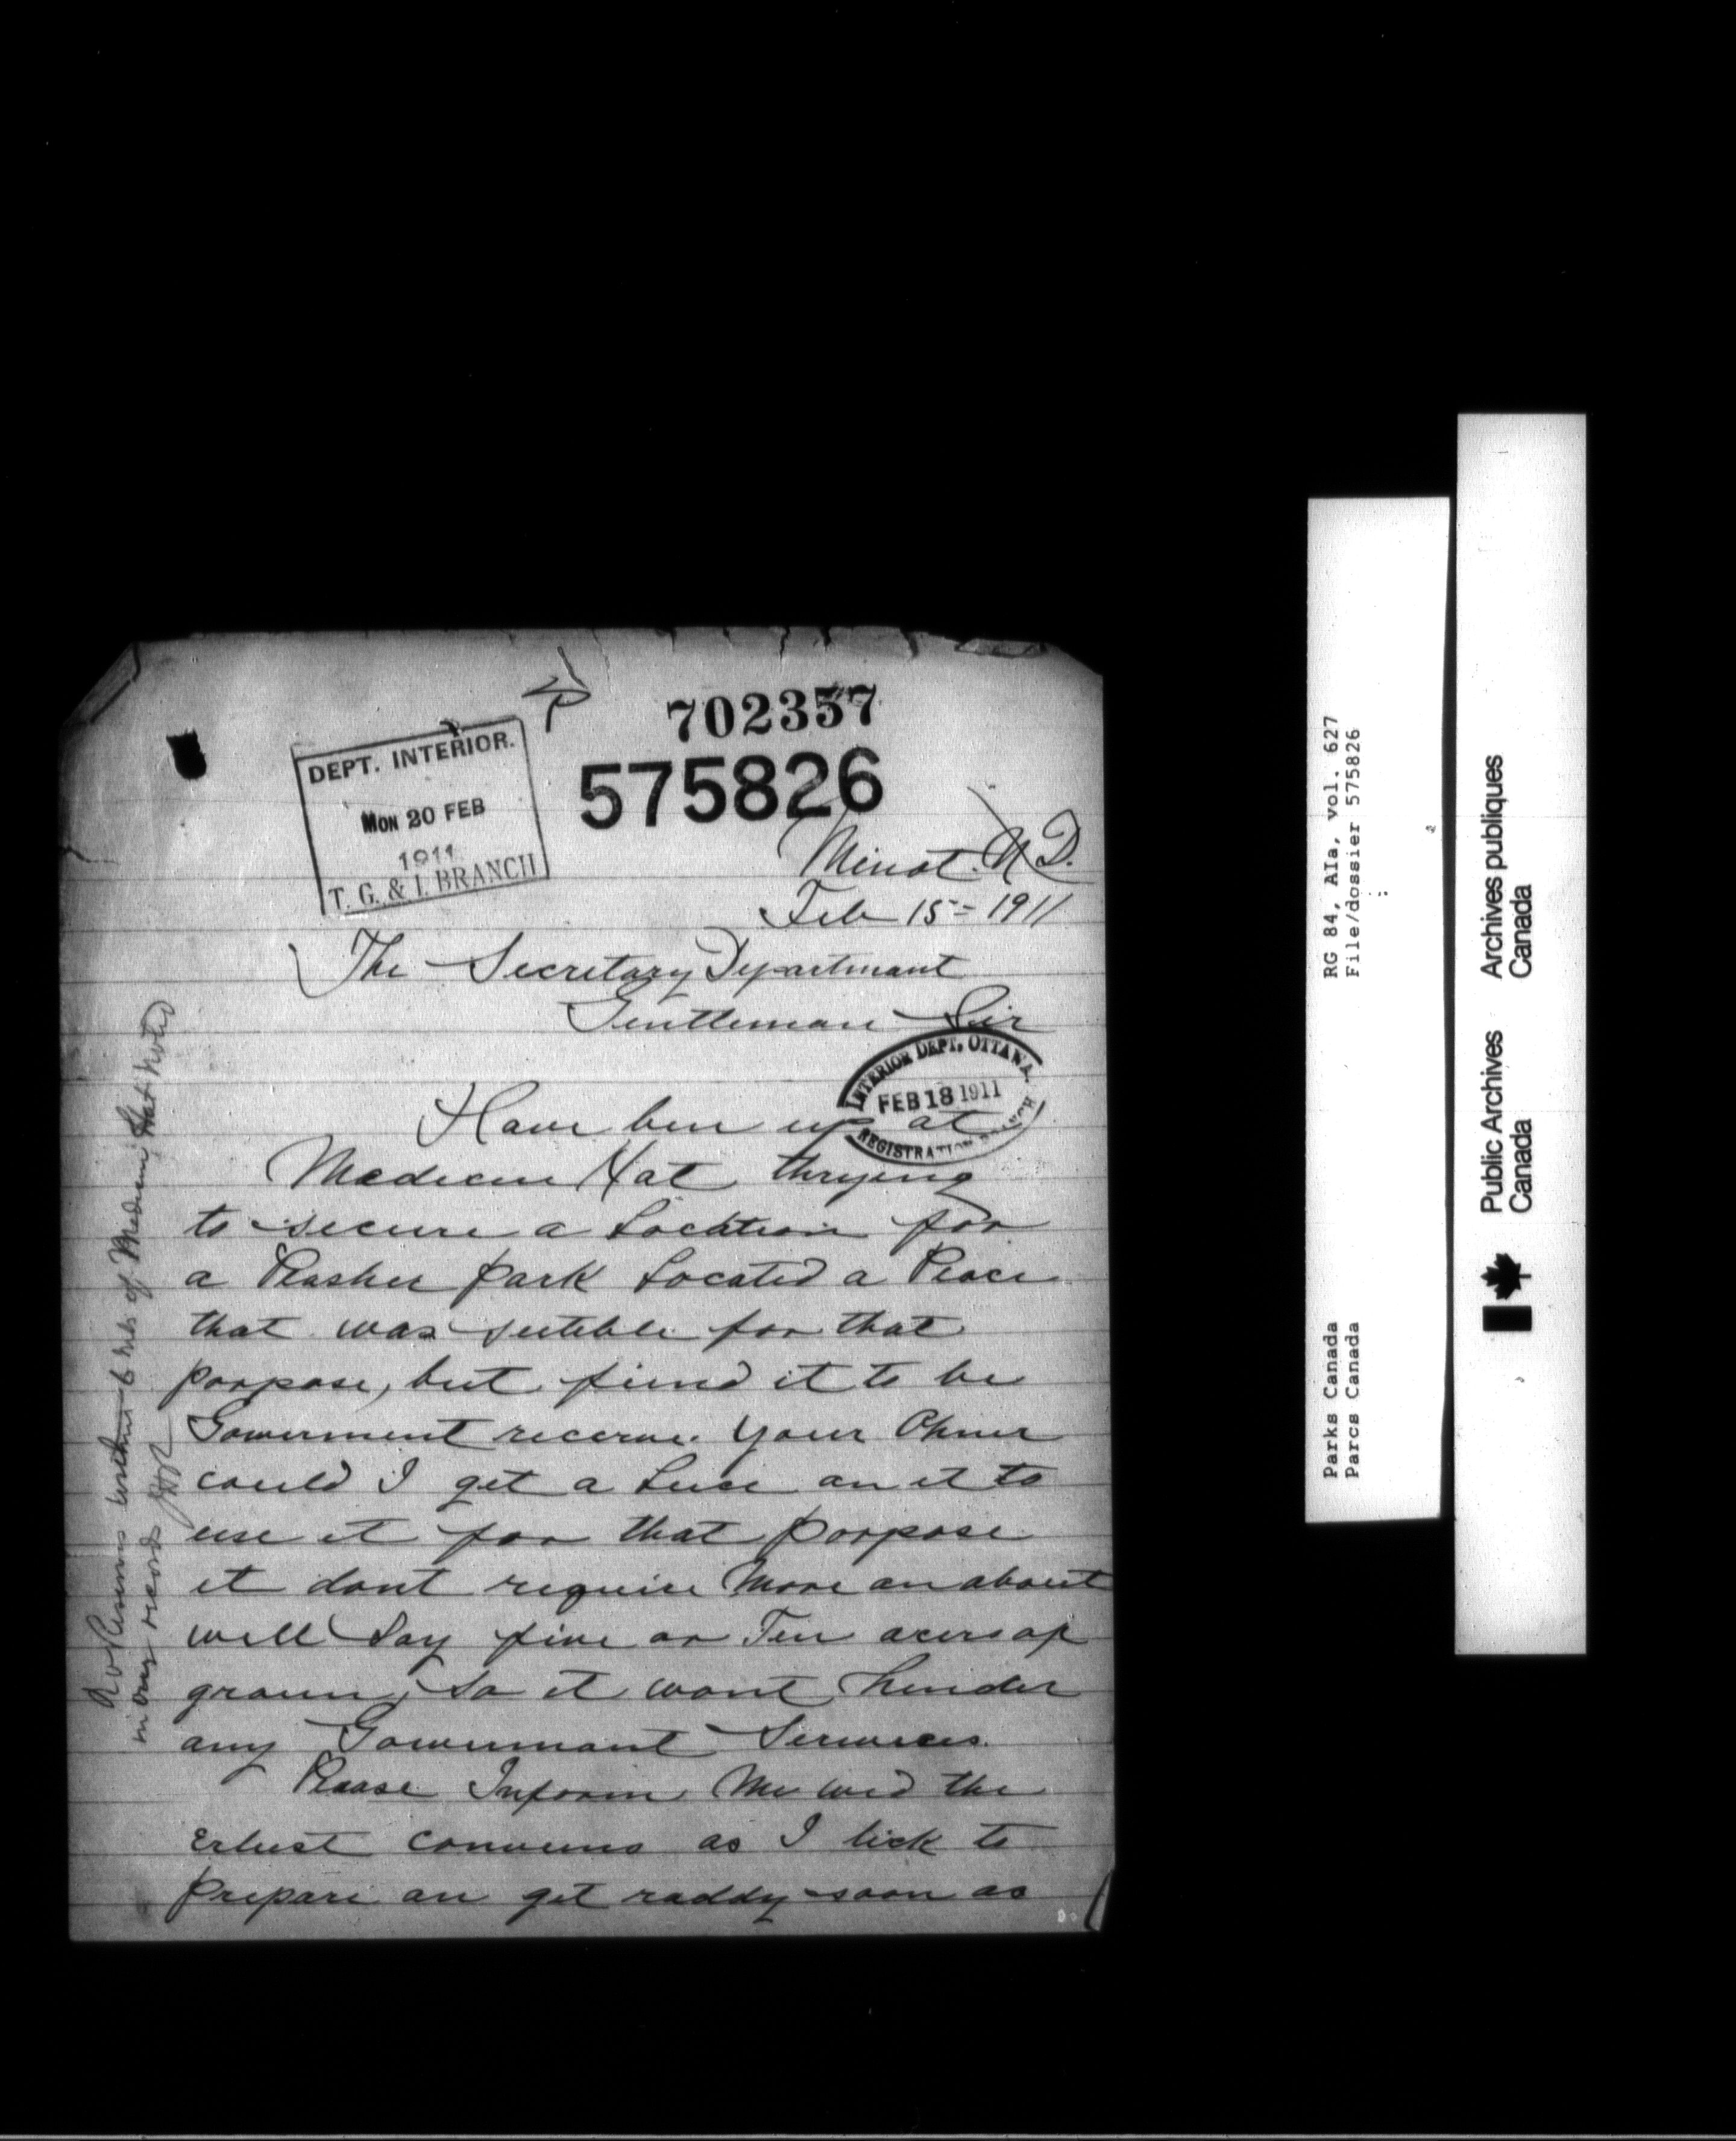 702357
575826
DEPT. INTERIOR.
MON 20 FEB
1911
T. G. & I. BRANCH
Minot. N.D.
Feb 15 = 1911
The Secretary Departmant
Gentleman Sir
INTERIOR DEPT. OTTAWA.
FEB 18 1911
REGISTRATION BRANCH
Have ben up at
Medecin Hat thrying
to secure a Location for
a Plasher park Located a Place
that was suteble for that
porpose, but fiend it to be
Gowerment recerve. Your Ohner
could I get a Luce an it to
use it for that porpose
it dont require More an about
well Say five or Ten acers of
groun, so it wont hender
any Gowermant Serweces.
Please Inform Me wid the
Erlust convenns as I lick to
prepare an get raddy soon as
No Reserves within 6 mls of Medicine Hat noted
in our records
RG 84, A1a, vol. 627
File/dossier 575826
Parks Canada
Parcs Canada
Public Archives
Canada
Archives publiques
Canada